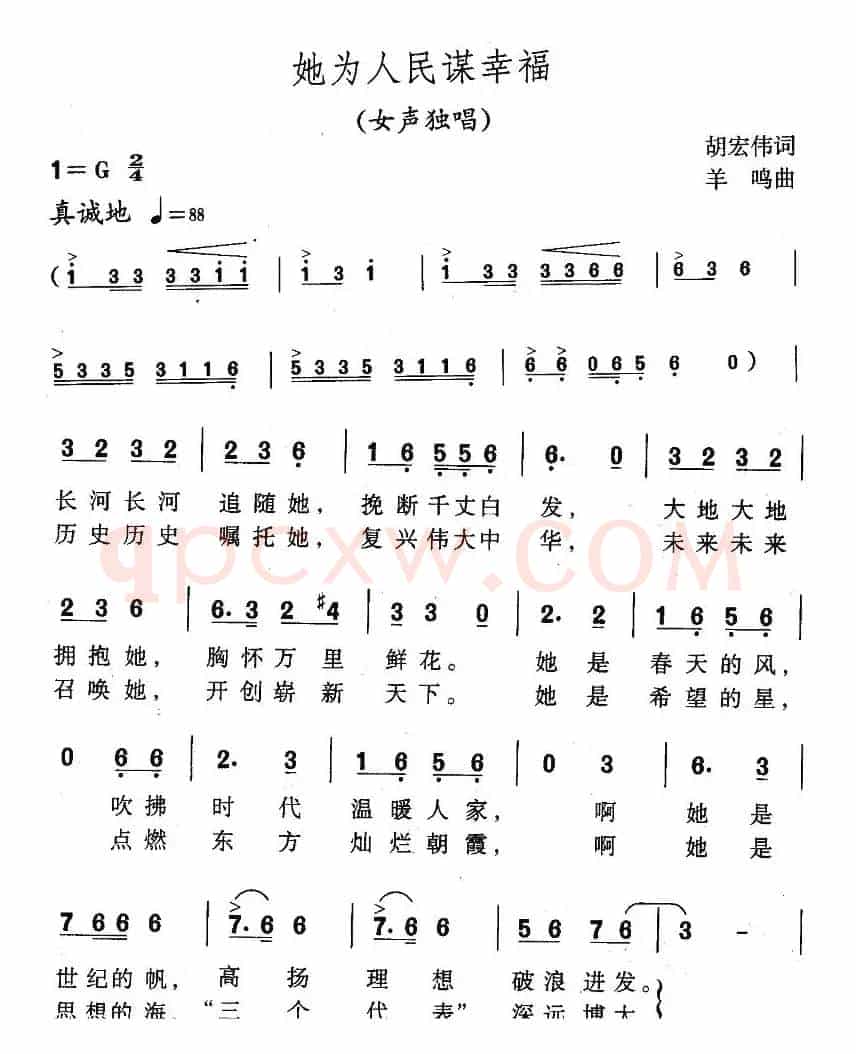 她为人民谋幸福
(女声独唱)
胡宏伟词
1=G 2/4
羊 鸣曲
真诚地 ♩=88
(i 33 33ii | i 3 i | i 33 3366 | 6 3 6 |
5335 3116 | 5335 3116 | 6 6 065 6 0) |
3 2 3 2 | 2 3 6 | 1 6 5 5 6 | 6. 0 | 3 2 3 2
长河长河 追随她, 挽断千丈白 发, 大地大地
历史历史 嘱托她, 复兴伟大中 华, 未来未来
qpcxw.COM
2 3 6 | 6. 3 2 #4 | 3 3 0 | 2. 2 | 1 6 5 6 |
拥抱她, 胸怀万里 鲜花。 她是 春天的风,
召唤她, 开创崭新 天下。 她是 希望的星,
0 6 6 | 2. 3 | 1 6 5 6 | 0 3 | 6. 3 |
吹拂 时代 温暖人家, 啊 她是
点燃 东方 灿烂朝霞, 啊 她是
7 6 6 6 | 7. 6 6 | 7. 6 6 | 5 6 7 6 | 3 - |
世纪的帆, 高扬 理想 破浪进发。
思想的海, “三个 代表” 深远博大